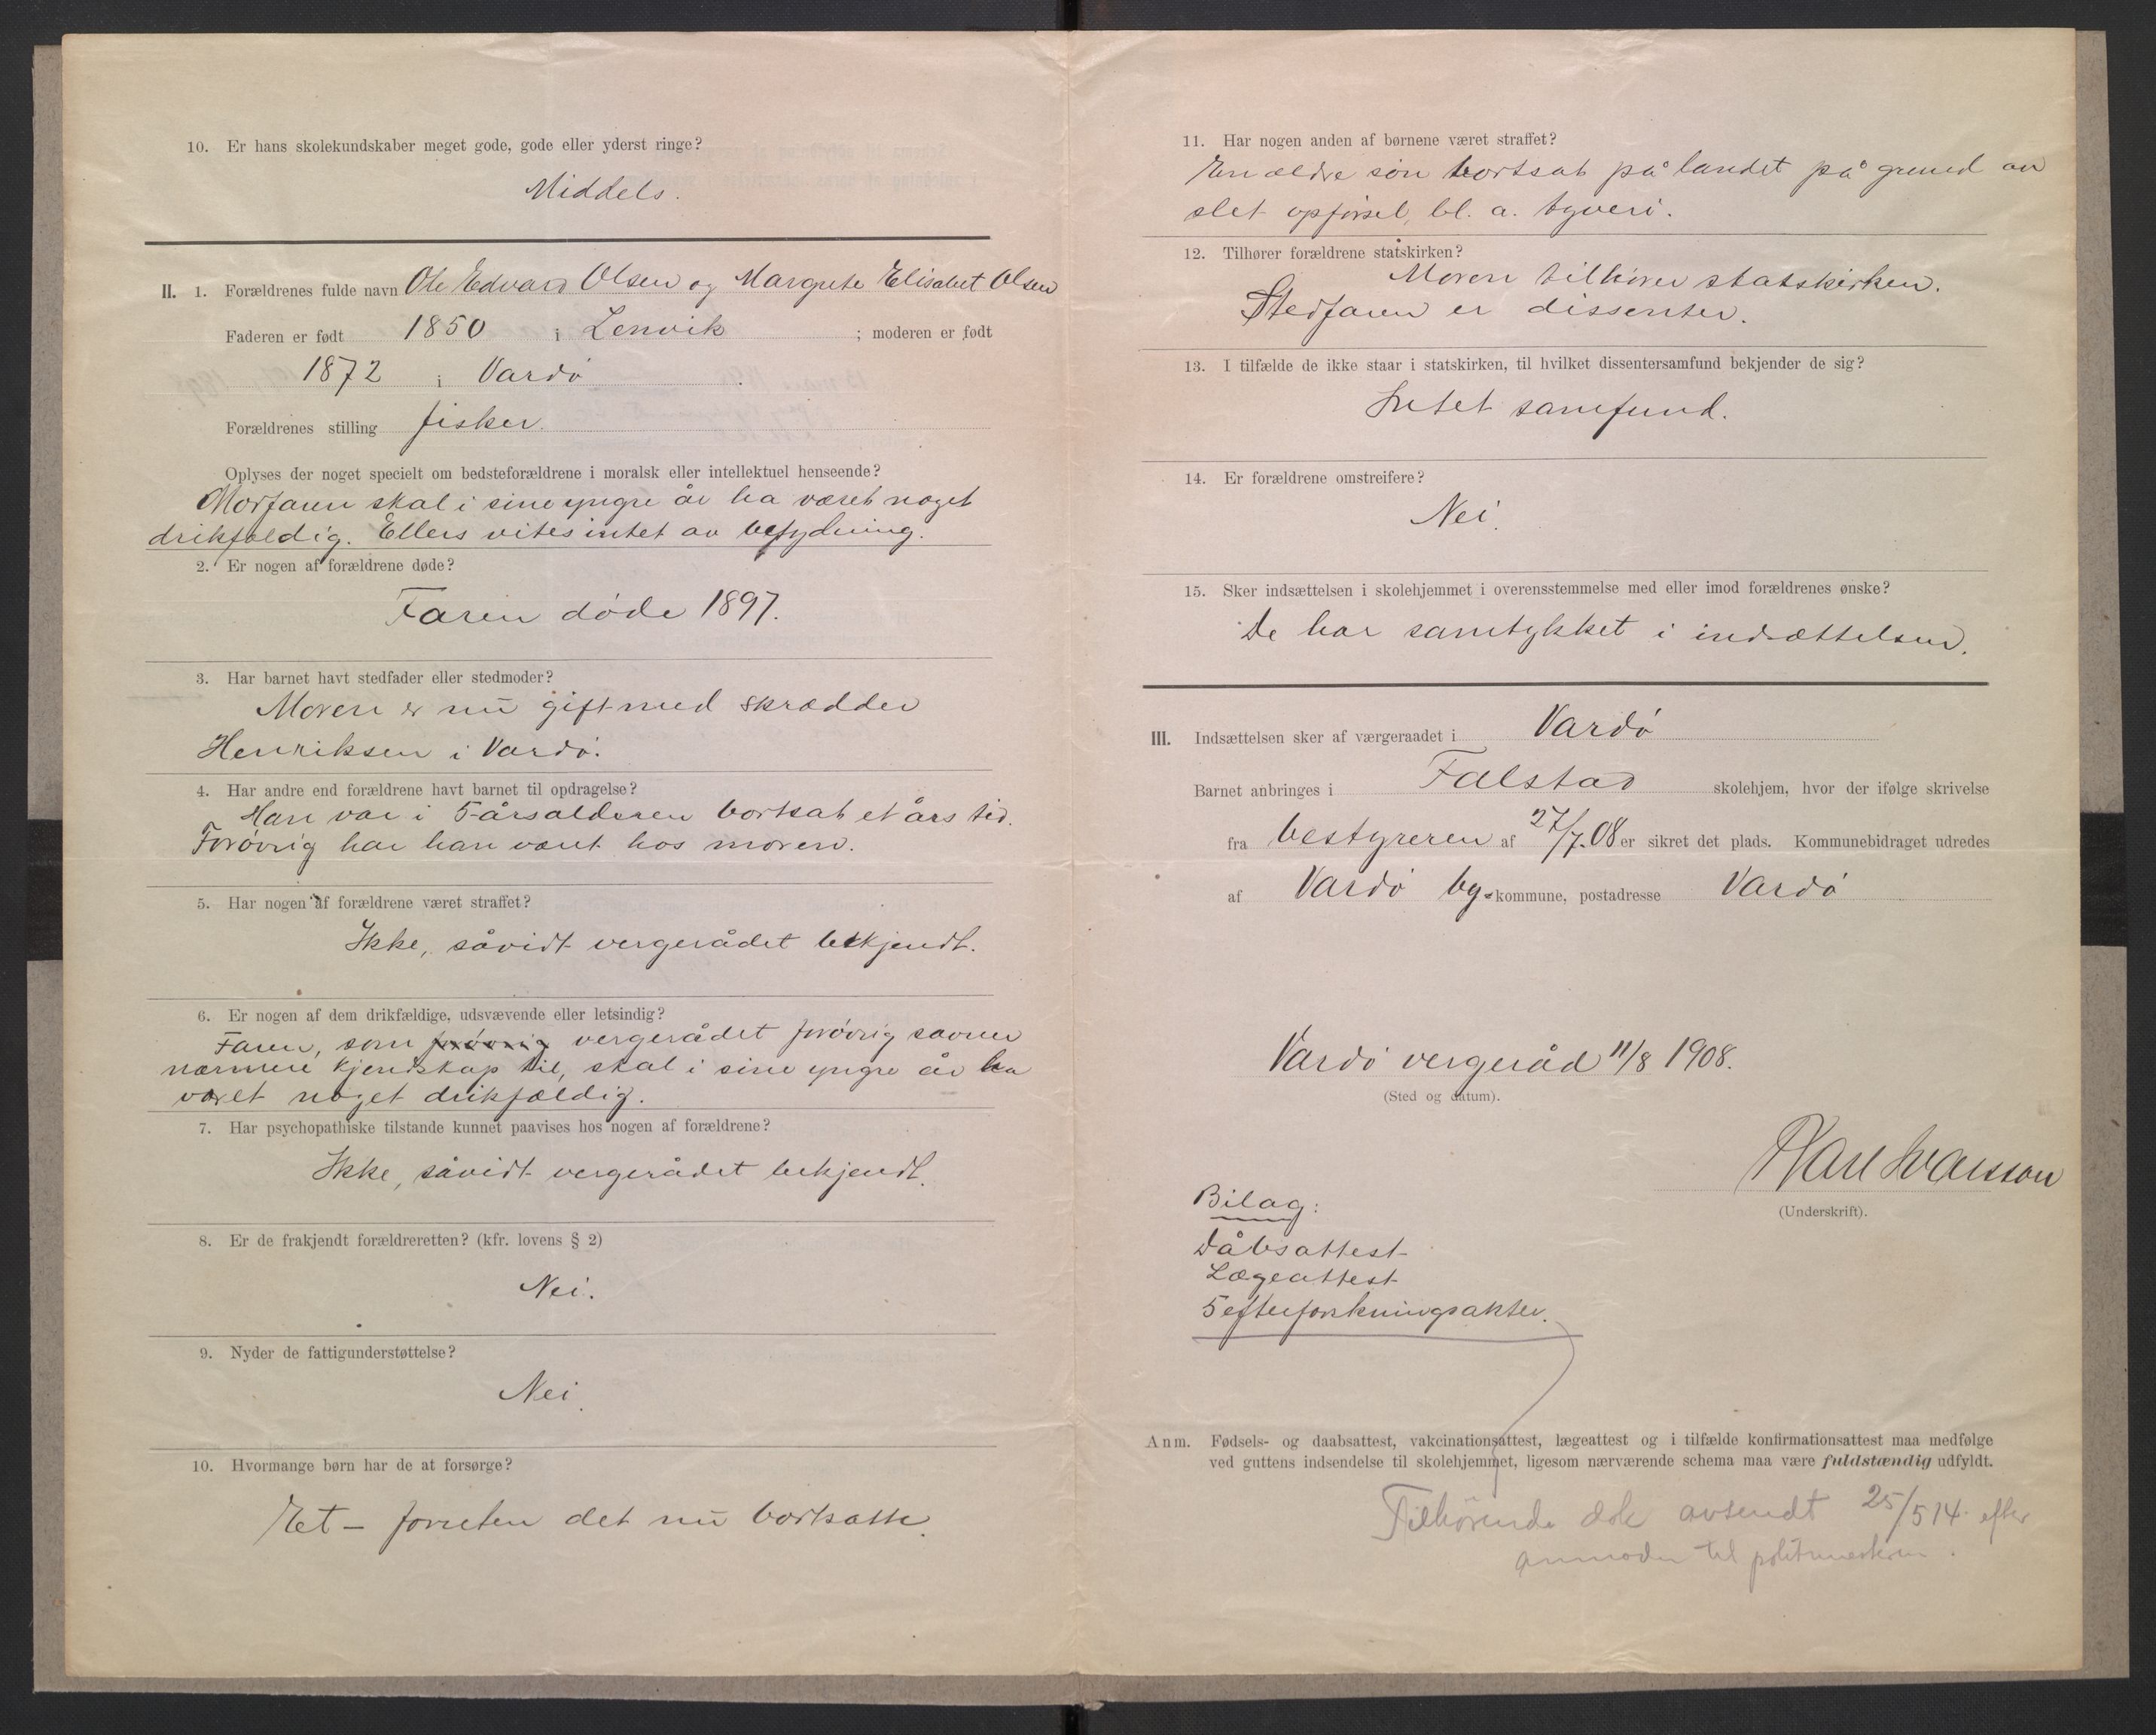 10. Er hans skolekundskaber meget gode, gode eller yderst ringe?
Middels.
II. 1. Forældrenes fulde navn Ole Edvard Olsen og Margrete Elisabet Olsen
Faderen er født 1850 i Lenvik ; moderen er født
1872 i Vardø .
Forældrenes stilling fisker
Oplyses der noget specielt om bedsteforældrene i moralsk eller intellektuel henseende?
Morfaren skal i sine yngre år ha været noget
drikfældig. Ellers vites intet av betydning.
2. Er nogen af forældrene døde?
Faren døde 1897.
3. Har barnet havt stedfader eller stedmoder?
Moren er nu gift med skrædder
Henriksen i Vardø.
4. Har andre end forældrene havt barnet til opdragelse?
Han var i 5-årsalderen bortsat et års tid.
Forøvrig har han været hos moren.
5. Har nogen af forældrene været straffet?
Ikke, såvidt vergerådet bekjendt.
6. Er nogen af dem drikfældige, udsvævende eller letsindig?
Faren, som forøvrig vergerådet forøvrig savner
nærmere kjendskap til, skal i sine yngre år ha
været noget drikfældig.
7. Har psychopathiske tilstande kunnet paavises hos nogen af forældrene?
Ikke, såvidt vergerådet bekjendt.
8. Er de frakjendt forældreretten? (kfr. lovens § 2)
Nei.
9. Nyder de fattigunderstøttelse?
Nei.
10. Hvormange børn har de at forsørge?
Et – foruten det nu bortsatte.
11. Har nogen anden af børnene været straffet?
En ældre søn bortsat på landet på grund av
slet opførsel, bl. a. tyveri.
12. Tilhører forældrene statskirken?
Moren tilhører statskirken.
Stedfaren er dissenter.
13. I tilfælde de ikke staar i statskirken, til hvilket dissentersamfund bekjender de sig?
Intet samfund.
14. Er forældrene omstreifere?
Nei.
15. Sker indsættelsen i skolehjemmet i overensstemmelse med eller imod forældrenes ønske?
De har samtykket i indsættelsen.
III. Indsættelsen sker af værgeraadet i Vardø
Barnet anbringes i Falstad skolehjem, hvor der ifølge skrivelse
fra bestyreren af 27/7.08 er sikret det plads. Kommunebidraget udredes
af Vardø by-kommune, postadresse Vardø
Vardø vergeråd 11/8 1908.
(Sted og datum).
Karl Ivarsson
(Underskrift).
Bilag:
Dåbsattest
Lægeattest
5 efterforskningsakter.
Anm. Fødsels- og daabsattest, vakcinationsattest, lægeattest og i tilfælde konfirmationsattest maa medfølge
ved guttens indsendelse til skolehjemmet, ligesom nærværende schema maa være fuldstændig udfyldt.
Tilhørende dok avsendt 25/5 14. efter
anmoden til politimesteren.